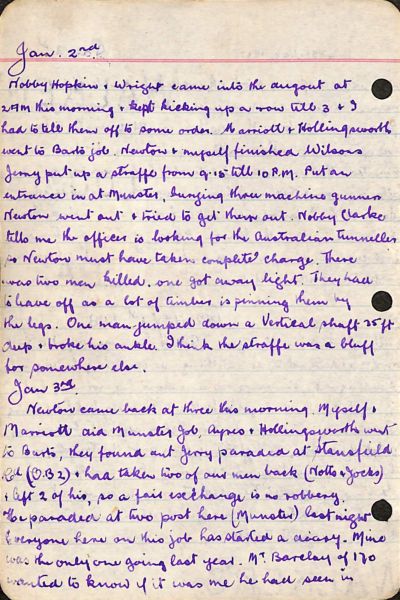 Jan. 2nd
Nobby Hopkins & Wright came into the dugout at
2 AM this morning & kept kicking up a row till 3 & I
had to tell them off to some order. Marriott & Hollingsworth
went to Barts job. Newton & myself finished Wilsons
Jerry put up a straffe from 9.15 till 10 P.M. Put an
entrance in at Munster, burying three machine gunners
Newton went out & tried to get them out. Nobby Clarke
tells me the officer is looking for the Australian tunneller
so Newton must have taken complete charge. There
was two men killed. one got away light. They had
to leave off as a lot of timber is pinning them by
the legs. One man jumped down a Vertical shaft 35 ft
deep & broke his ankle. I think the straffe was a bluff
for somewhere else.
Jan 3rd.
Newton came back at three this morning. Myself &
Marriott did Munster Job, Ayres & Hollingsworths went
to Barts, they found out Jerry paraded at Stansfield
Rd (O.B2) & had taken two of our men back (Notts & Jocks)
& left 2 of his, so a fair exchange is no robbery.
He paraded at two post here (Munster) last night
Everyone here on this job has started a diary. Mine
was the only one going last year. Mr Barclay of 170
wanted to know if it was me he had seen in